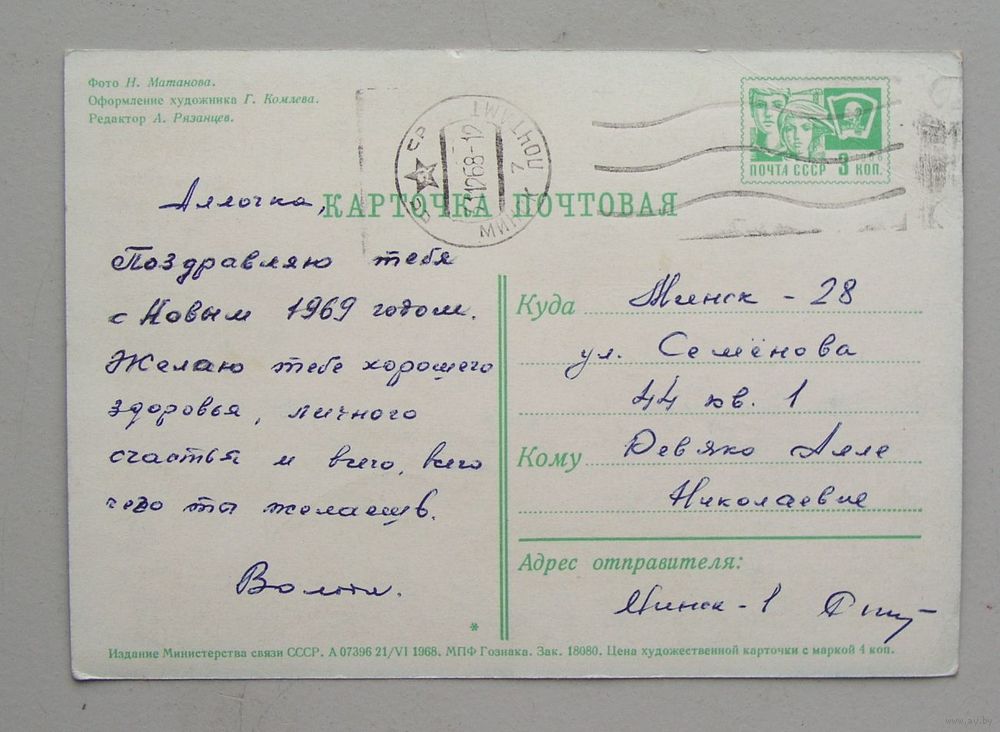 Фото Н. Матанова.
Оформление художника Г. Комлева.
Редактор А. Рязанцев.
ПОЧТА СССР 3 КОП.
КАРТОЧКА ПОЧТОВАЯ
Аллочка,
Поздравляю тебя
с Новым 1969 годом.
Желаю тебе хорошего
здоровья, личного
счастья и всего, всего
чего ты желаешь.
Куда Минск - 28
ул. Семёнова
44 кв. 1
Кому Девяко Алле
Николаевне
Адрес отправителя:
Минск - 1
*
Издание Министерства связи СССР. А 07396 21/VI 1968. МПФ Гознака. Зак. 18080. Цена художественной карточки с маркой 4 коп.
www.ay.by